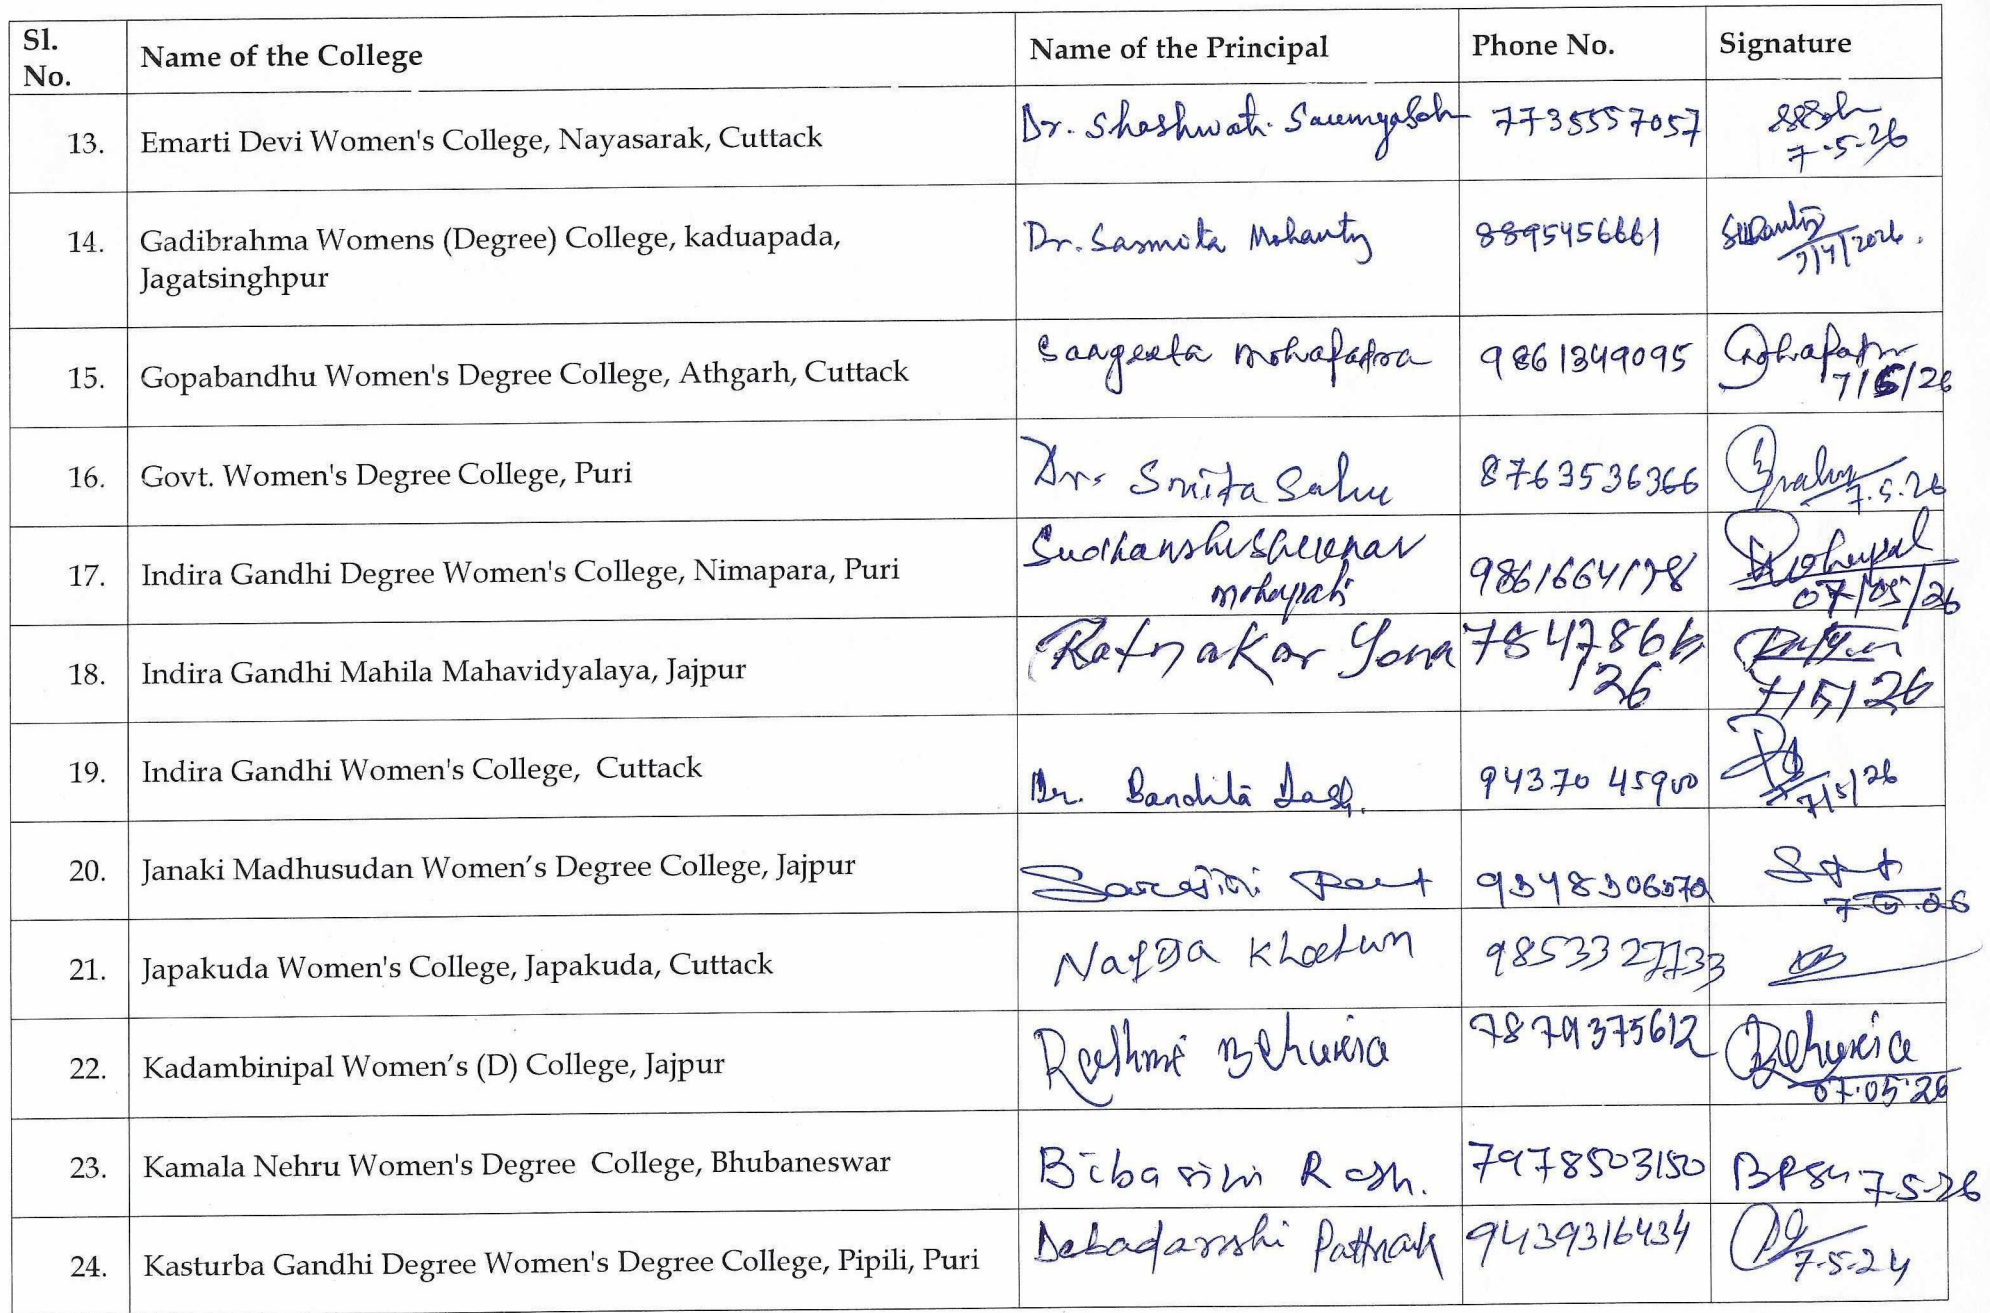 Sl. No. Name of the College Name of the Principal Phone No. Signature
13. Emarti Devi Women's College, Nayasarak, Cuttack Dr. Shashwati Soumya Sah 7735557057
7-5-26
14. Gadibrahma Womens (Degree) College, kaduapada, Dr. Sasmita Mohanty 8895456661
Jagatsinghpur
15. Gopabandhu Women's Degree College, Athgarh, Cuttack Sangeeta Mohapatra 9861349095 Mohapatra
7/5/26
16. Govt. Women's Degree College, Puri Dr. Smita Sahu 8763536366
7.5.26
17. Indira Gandhi Degree Women's College, Nimapara, Puri Mohapatra
07/05/26
18. Indira Gandhi Mahila Mahavidyalaya, Jajpur Ratnakar Jena
7/5/26
19. Indira Gandhi Women's College, Cuttack Dr. Bandita Dash. 94370 45900
7/5/26
20. Janaki Madhusudan Women’s Degree College, Jajpur Sarojini Rout
21. Japakuda Women's College, Japakuda, Cuttack Khatun 9853327733
22. Kadambinipal Women’s (D) College, Jajpur Rashmi Behura 7879375612 Behura
07.05.26
23. Kamala Nehru Women's Degree College, Bhubaneswar Bibasini Rash. 7978503150
7-5-26
24. Kasturba Gandhi Degree Women's Degree College, Pipili, Puri Debadarshi Pattnaik 9439316434
7-5-24